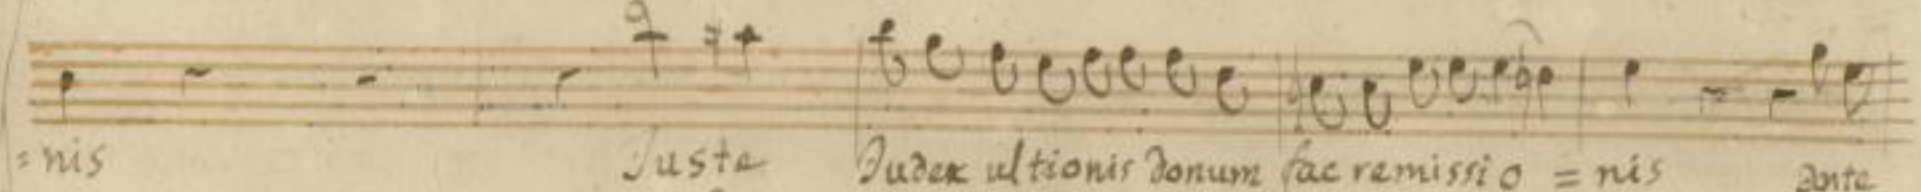 =nis Juste Judex ultionis donum fac remissio =nis ante